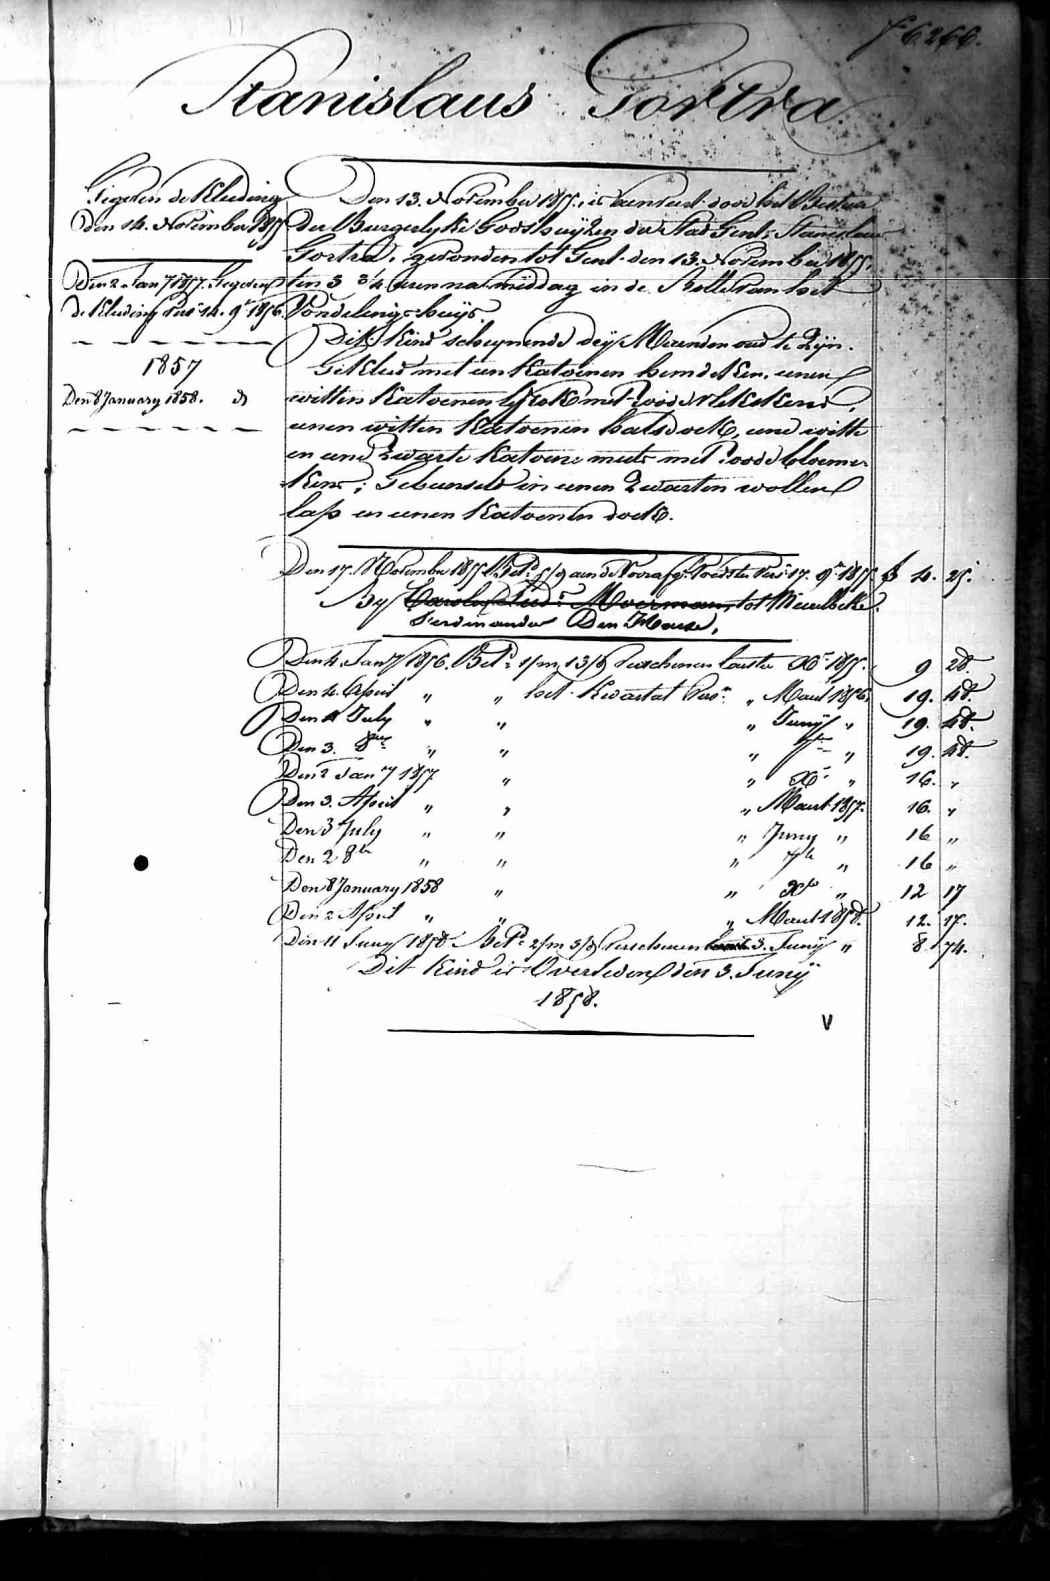 f° 6266.
Stanislaus Gortra
Gegeven de Kleeding
den 14. November 1855
Den 2 Jan^y 1857. Gegeven
de Kleeding Pro 14. 9^r 1856.
1857
Den 8 January 1858. d°
Den 13. November 1855, is aenveerd door het Bestuer
der Burgerlyke Godshuyzen der Stad Gent, Stanislaus
Gortra, gevonden tot Gent den 13. November 1855,
ten 3 3/4 uren namiddag in de Rolle van het
Vondelingshuys.
Dit Kind schynende dry Maenden oud te zyn.
Gekleed met een Katoenen hemdeken, eenen
witten Katoenen Frok met roode vlekskens,
eenen witten Katoenen halsdoek, eene witte
en eene Zwarte Katoene muts met roode bloeme-
kens; Gebunseld in eenen Zwarten wollen
lap en eenen Katoenen doek.
Den 17. November 1855 Bet^d aen de Voorafg: Voedster Pro 17. 9^r 1855. 4. 25.
By Carolus Moermans, tot Meirelbeke.
Ferdinandus Den Haese,
Den 4. Jan^y 1856. Bet^d 1/m 13/d Verschenen laeste X^r 1855. 9 28.
Den 4. April " " het Kwartael Pro " Maert 1856. 19. 48.
Den 4 July " " " Juny " 19. 48.
Den 3. 8^ber " " " 7^r " 19. 48.
Den 2 Jan^y 1857 " " X^r " 16. "
Den 3. April " " " Maert 1857. 16. "
Den 3 July " " " Juny " 16 "
Den 2 8^br " " " 7^br " 16 "
Den 8 January 1858 " " X^br " 12 17
Den 2 April " " " Maert 1858. 12. 17.
Den 11 Juny 1858 Bet^d 2/m 3/d Verschenen 3. Juny " 8. 74.
Dit Kind is Overleden den 3. Juny
1858.
V